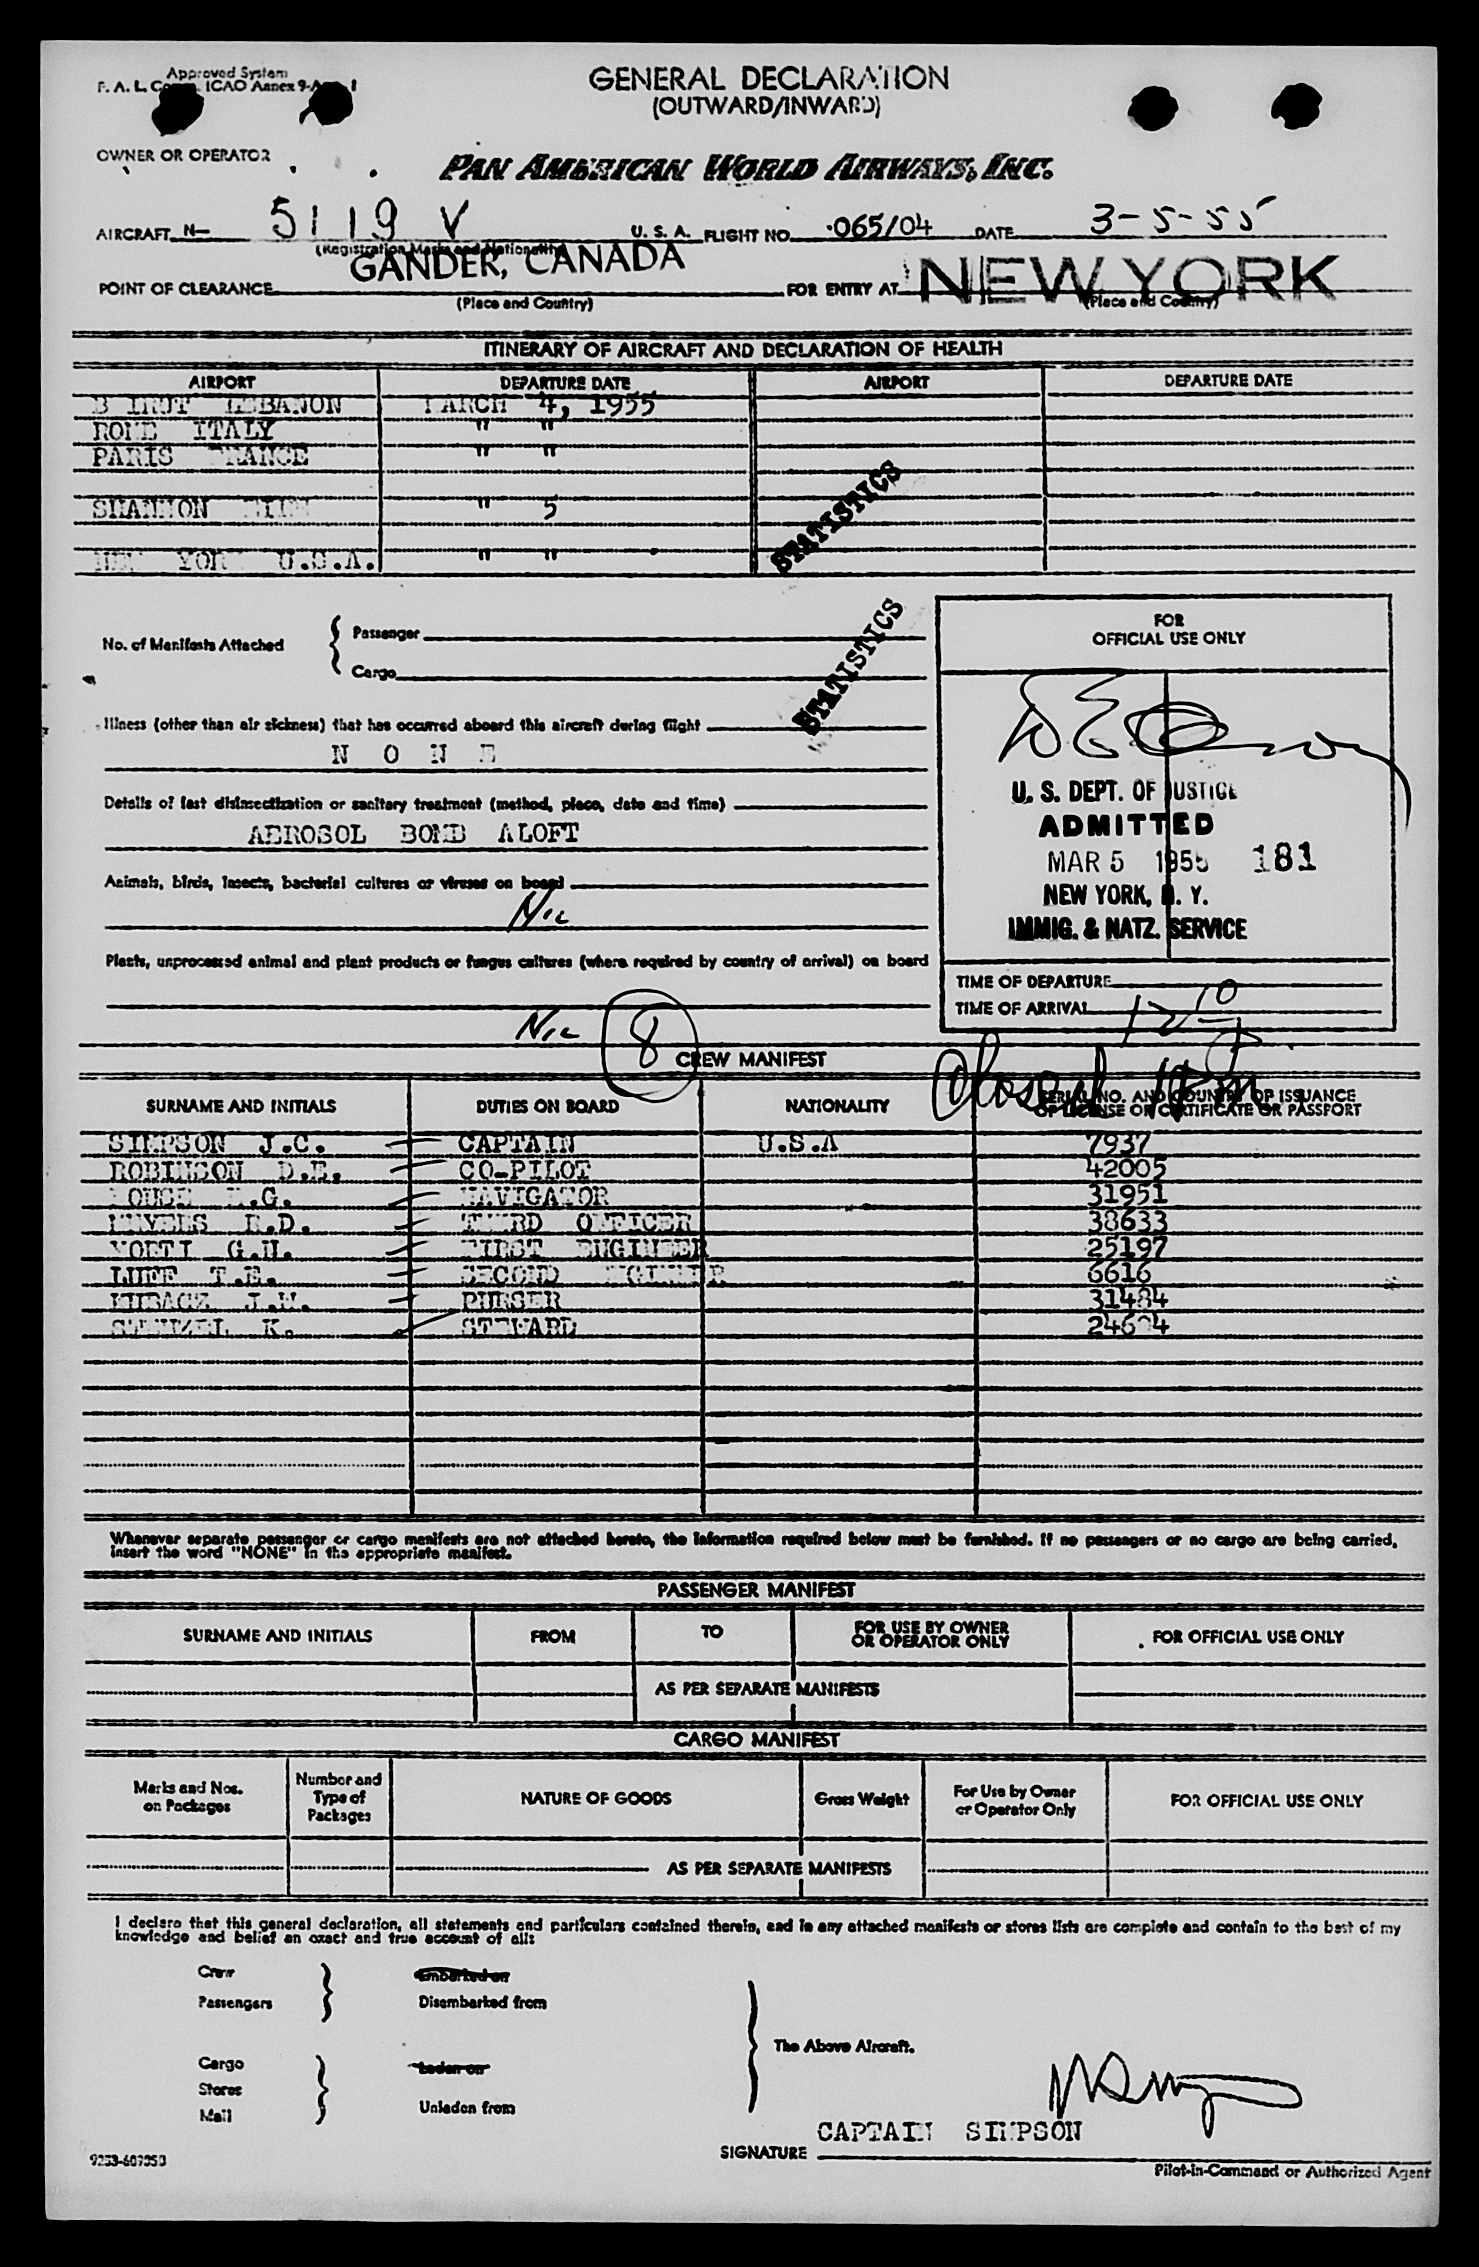 Approved System
GENERAL DECLARATION
(OUTWARD/INWARD)
OWNER OR OPERATOR
PAN AMERICAN WORLD AIRWAYS, INC.
AIRCRAFT N- 5119 V U. S. A. FLIGHT NO. 065/04 DATE 3-5-55
(Registration Marks and Nationality)
POINT OF CLEARANCE GANDER, CANADA FOR ENTRY AT NEW YORK
(Place and Country) (Place and Country)
ITINERARY OF AIRCRAFT AND DECLARATION OF HEALTH
AIRPORT DEPARTURE DATE AIRPORT DEPARTURE DATE
LEBANON MARCH 4, 1955
ROME ITALY " "
PARIS FRANCE " "
SHANNON " 5
NEW YORK U.S.A. " "
STATISTICS
STATISTICS
No. of Manifests Attached { Passenger
Cargo
Illness (other than air sickness) that has occurred aboard this aircraft during flight
N O N E
Details of last disinsectization or sanitary treatment (method, place, date and time)
AEROSOL BOMB ALOFT
Animals, birds, insects, bacterial cultures or viruses on board
Nil
Plants, unprocessed animal and plant products or fungus cultures (where required by country of arrival) on board
Nil
FOR
OFFICIAL USE ONLY
U. S. DEPT. OF JUSTICE
ADMITTED
MAR 5 1955 181
NEW YORK, N. Y.
IMMIG. & NATZ. SERVICE
TIME OF DEPARTURE
TIME OF ARRIVAL
8
CREW MANIFEST
SURNAME AND INITIALS DUTIES ON BOARD NATIONALITY SERIAL NO. AND COUNTRY OF ISSUANCE
OF LICENSE OR CERTIFICATE OR PASSPORT
SIMPSON J.C. CAPTAIN U.S.A 7937
ROBINSON D.E. CO-PILOT 42005
NAVIGATOR 31951
THIRD OFFICER 38633
G.H. FIRST ENGINEER 25197
T.E. SECOND ENGINEER 6616
PURSER 31484
K. STEWARD
Whenever separate passenger or cargo manifests are not attached hereto, the information required below must be furnished. If no passengers or no cargo are being carried,
insert the word "NONE" in the appropriate manifest.
PASSENGER MANIFEST
SURNAME AND INITIALS FROM TO FOR USE BY OWNER
OR OPERATOR ONLY FOR OFFICIAL USE ONLY
AS PER SEPARATE MANIFESTS
CARGO MANIFEST
Marks and Nos.
on Packages Number and
Type of
Packages NATURE OF GOODS Gross Weight For Use by Owner
or Operator Only FOR OFFICIAL USE ONLY
AS PER SEPARATE MANIFESTS
I declare that this general declaration, all statements and particulars contained therein, and in any attached manifests or stores lists are complete and contain to the best of my
knowledge and belief an exact and true account of all:
Crew } Embarked on
Passengers Disembarked from
The Above Aircraft.
Cargo Laden on
Stores
Mail Unladen from
CAPTAIN SIMPSON
SIGNATURE
Pilot-in-Command or Authorized Agent